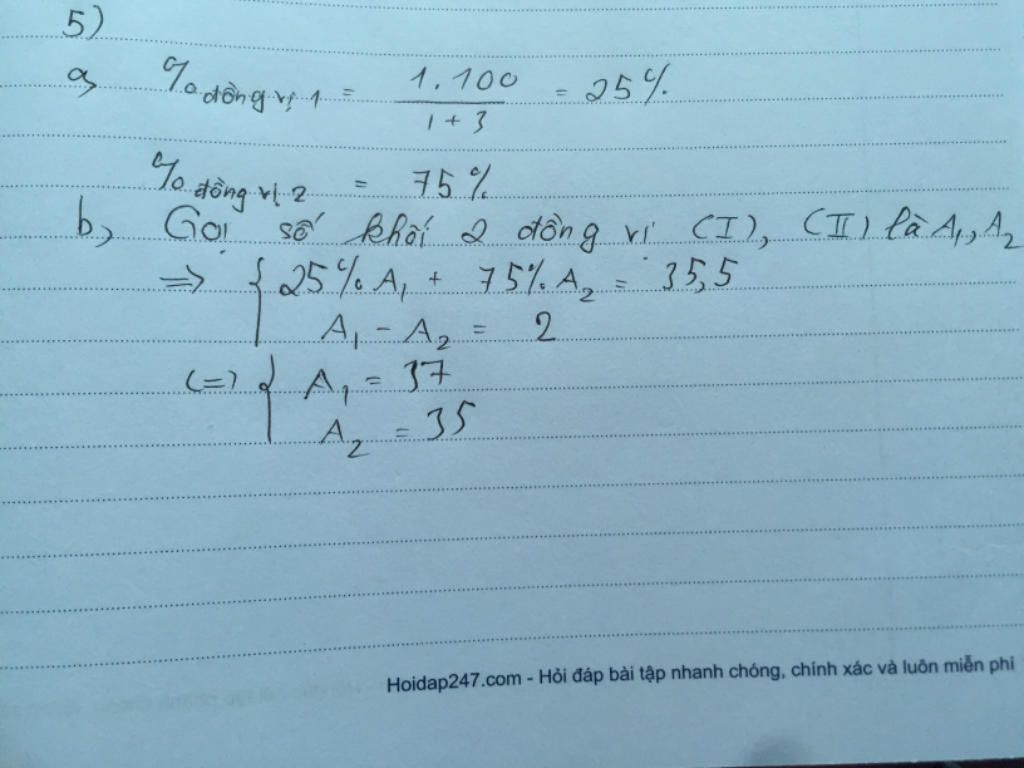 5)
a) % đồng vị 1 = 1.100 / 1 + 3 = 25%
% đồng vị 2 = 75%
b) Gọi số khối 2 đồng vị (I), (II) là A₁, A₂
=> { 25% A₁ + 75% A₂ = 35,5
A₁ - A₂ = 2
(=) { A₁ = 37
A₂ = 35
Hoidap247.com - Hỏi đáp bài tập nhanh chóng, chính xác và luôn miễn phí